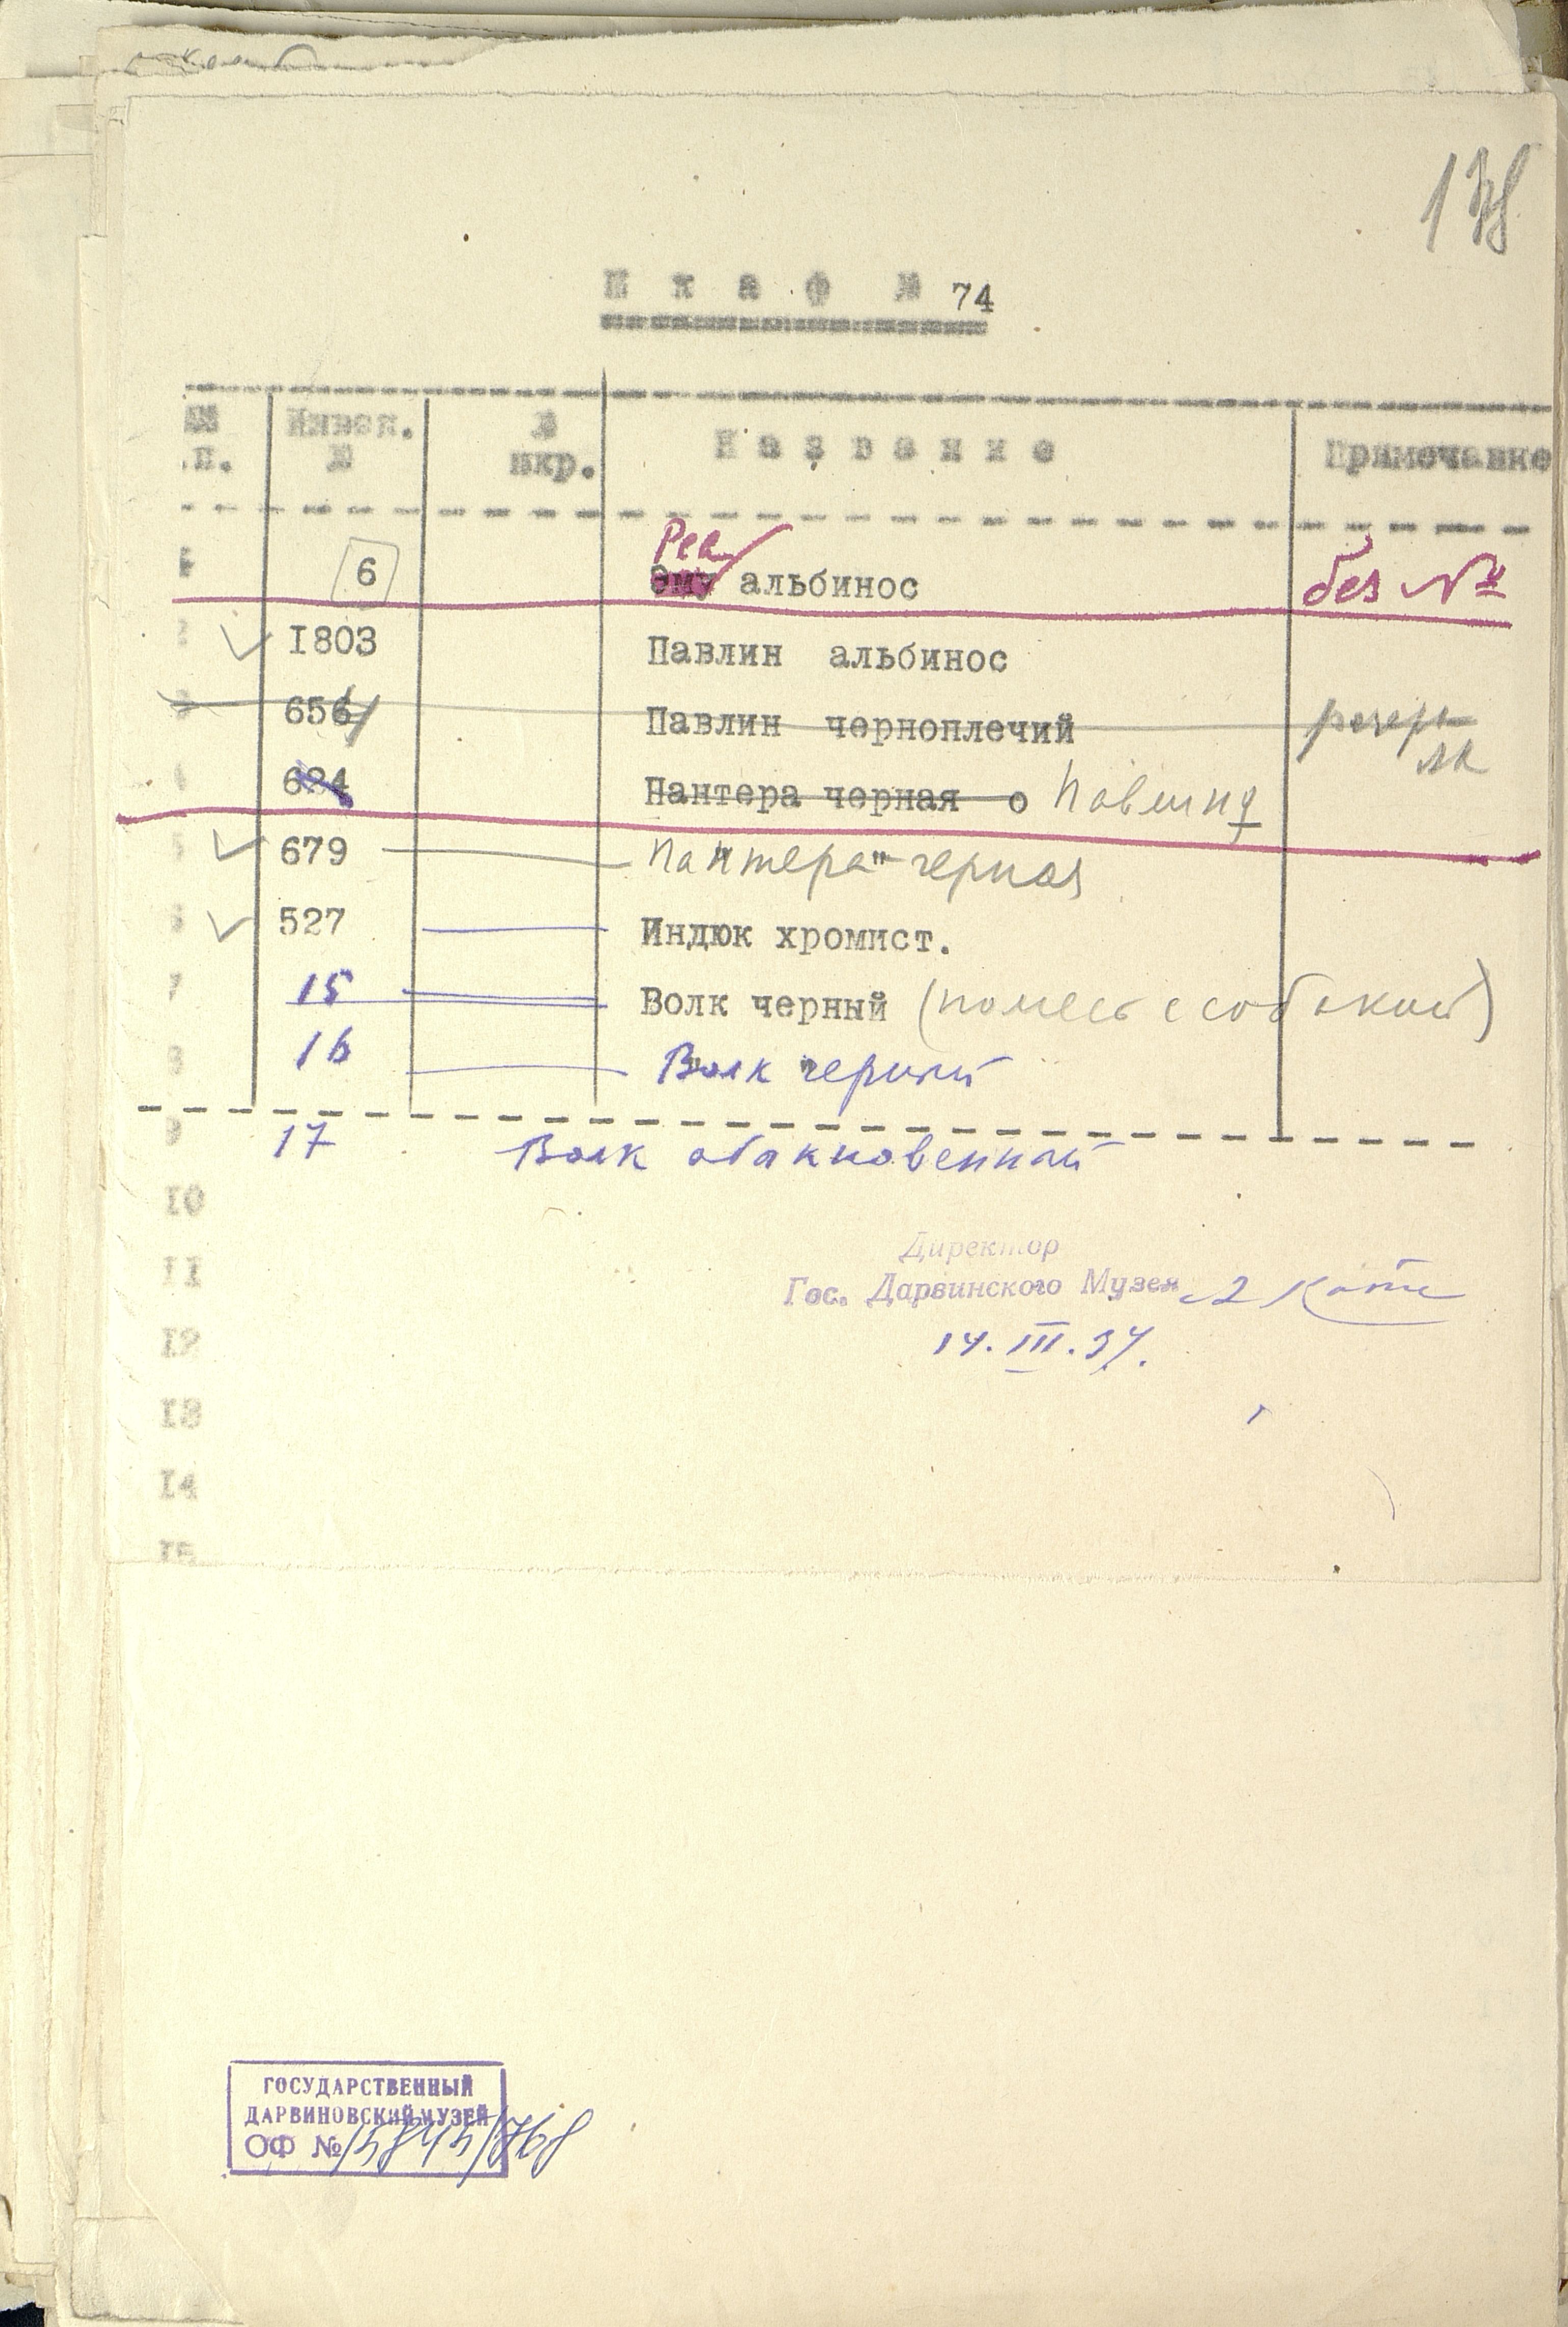 138
Шкаф № 74
№№ Инвен. № Название Примечание
.п. № шкр.
Реа
1 6 Эму альбинос без №
2 1803 Павлин альбинос
3 656 Павлин черноплечий резерв
4 624 Пантера черная о Павлин ♀
5 679 Пантера черная
6 527 Индюк хромист.
7 15 Волк черный (помесь с собакой)
8 16 Волк черный
9 17 Волк обакновенный
10
Директор
11 Гос. Дарвинского Музея А Котс
12 14.III.37.
13
14
15
ГОСУДАРСТВЕННЫЙ
ДАРВИНОВСКИЙ МУЗЕЙ
ОФ № 15845/768